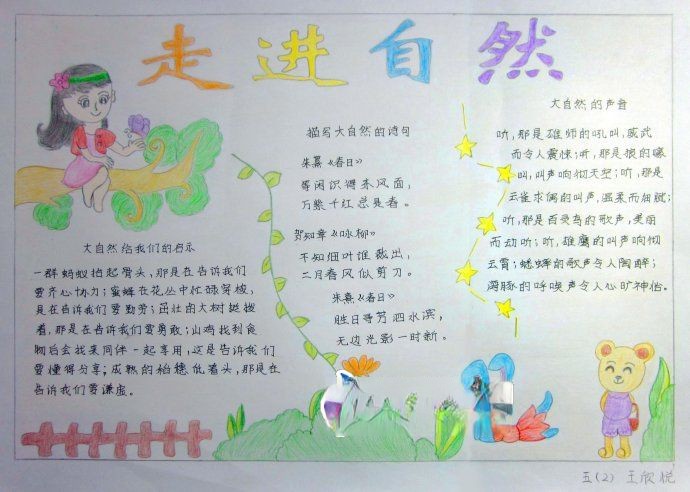 走进自然
大自然给我们的启示
一群蚂蚁抬起骨头,那是在告诉我们
要齐心协力;蜜蜂在花丛中忙碌穿梭,
是在告诉我们要勤劳;茁壮的大树挺拔
着,那是在告诉我们要勇敢;山鸡找到食
物后会找来同伴一起享用,这是告诉我们
要懂得分享;成熟的稻穗低着头,那是在
告诉我们要谦虚。
描写大自然的诗句
朱熹《春日》
等闲识得东风面,
万紫千红总是春。
贺知章《咏柳》
不知细叶谁裁出,
二月春风似剪刀。
朱熹《春日》
胜日寻芳泗水滨,
无边光影一时新。
大自然的声音
听,那是雄师的吼叫,威武
而令人震悚;听,那是狼的嚎
叫,叫声响彻天空;听,那是
云雀求偶的叫声,温柔而细腻;
听,那是百灵鸟的歌声,美丽
而动听;听,雄鹰的叫声响彻
云霄;蟋蟀的歌声令人陶醉;
海豚的呼唤声令人心旷神怡。
五(2) 王欣悦